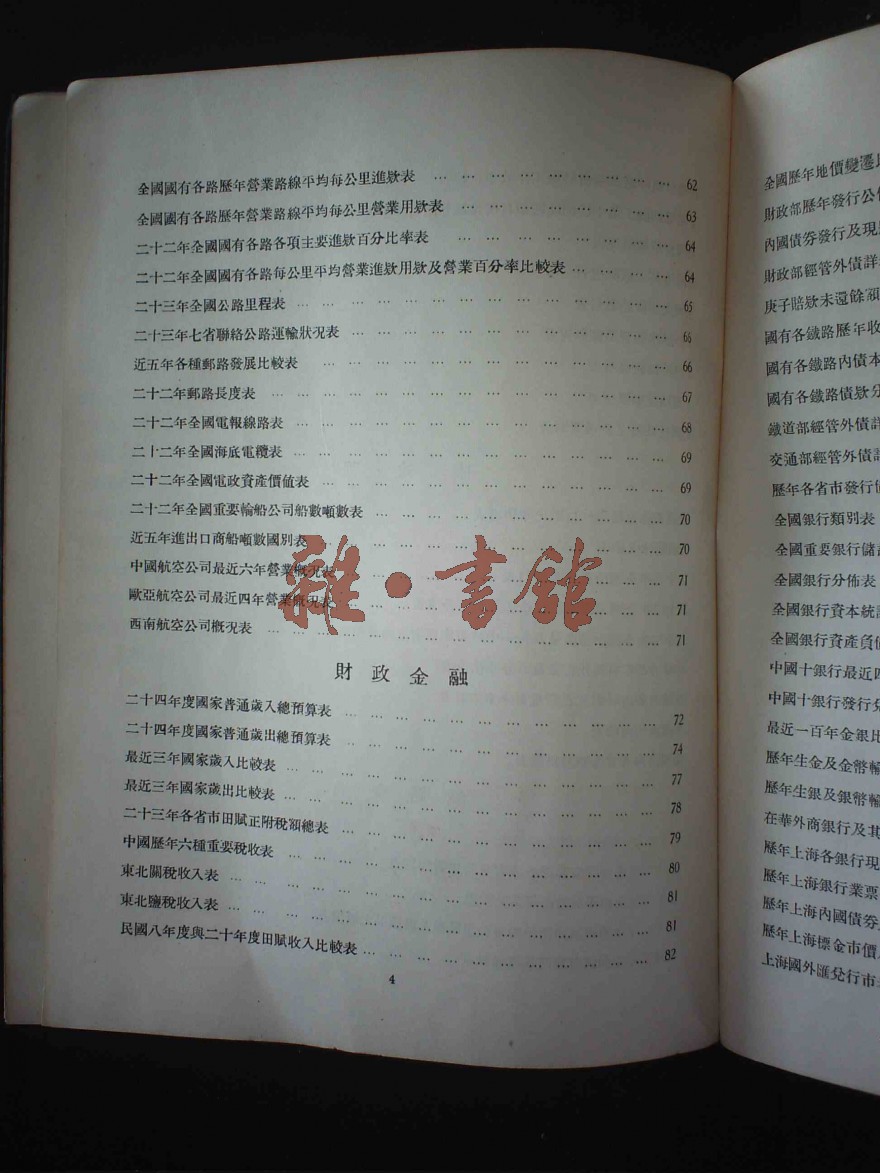 全國國有各路歷年營業路線平均每公里進欵表 … … … … … … … … … 62
全國國有各路歷年營業路線平均每公里營業用欵表 … … … … … … … … 63
二十二年全國國有各路各項主要進欵百分比率表 … … … … … … … … 64
二十二年全國國有各路每公里平均營業進欵用欵及營業百分率比較表 … … … … 64
二十三年全國公路里程表 … … … … … … … … … … … … … 65
二十三年七省聯絡公路運輸狀况表 … … … … … … … … … … … 65
近五年各種郵路發展比較表 … … … … … … … … … … … … 66
二十二年郵路長度表 … … … … … … … … … … … … … … 67
二十二年全國電報線路表 … … … … … … … … … … … … … 68
二十二年全國海底電纜表 … … … … … … … … … … … … … 69
二十二年全國電政資產價值表 … … … … … … … … … … … … 69
二十二年全國重要輪船公司船數噸數表 … … … … … … … … … … 70
近五年進出口商船噸數國別表 … … … … … … … … … … … … 70
中國航空公司最近六年營業概况表 … … … … … … … … … … … 71
歐亞航空公司最近四年營業概况表 … … … … … … … … … … … 71
西南航空公司概况表 … … … … … … … … … … … … … … 71
財政金融
二十四年度國家普通歲入總預算表 … … … … … … … … … … … 72
二十四年度國家普通歲出總預算表 … … … … … … … … … … … 74
最近三年國家歲入比較表 … … … … … … … … … … … … … 77
最近三年國家歲出比較表 … … … … … … … … … … … … … 78
二十三年各省市田賦正附稅額總表 … … … … … … … … … … … 79
中國歷年六種重要稅收表 … … … … … … … … … … … … … 80
東北關稅收入表 … … … … … … … … … … … … … … … 81
東北鹽稅收入表 … … … … … … … … … … … … … … … 81
民國八年度與二十年度田賦收入比較表 … … … … … … … … … … 82
4
雜·書館
全國歷年地價變遷
財政部歷年發行公
內國債券發行及現
財政部經管外債詳
庚子賠欵未還餘額
國有各鐵路歷年收
國有各鐵路內債本
國有各鐵路債欵分
鐵道部經管外債詳
交通部經管外債詳
歷年各省市發行
全國銀行類別表
全國重要銀行儲
全國銀行分佈表
全國銀行資本統
全國銀行資產負
中國十銀行最近四
中國十銀行發行兌
最近一百年金銀比
歷年生金及金幣輸
歷年生銀及銀幣輸
在華外商銀行及其
歷年上海各銀行現
歷年上海銀行業票
歷年上海內國債券
歷年上海標金市價
上海國外匯兌行市